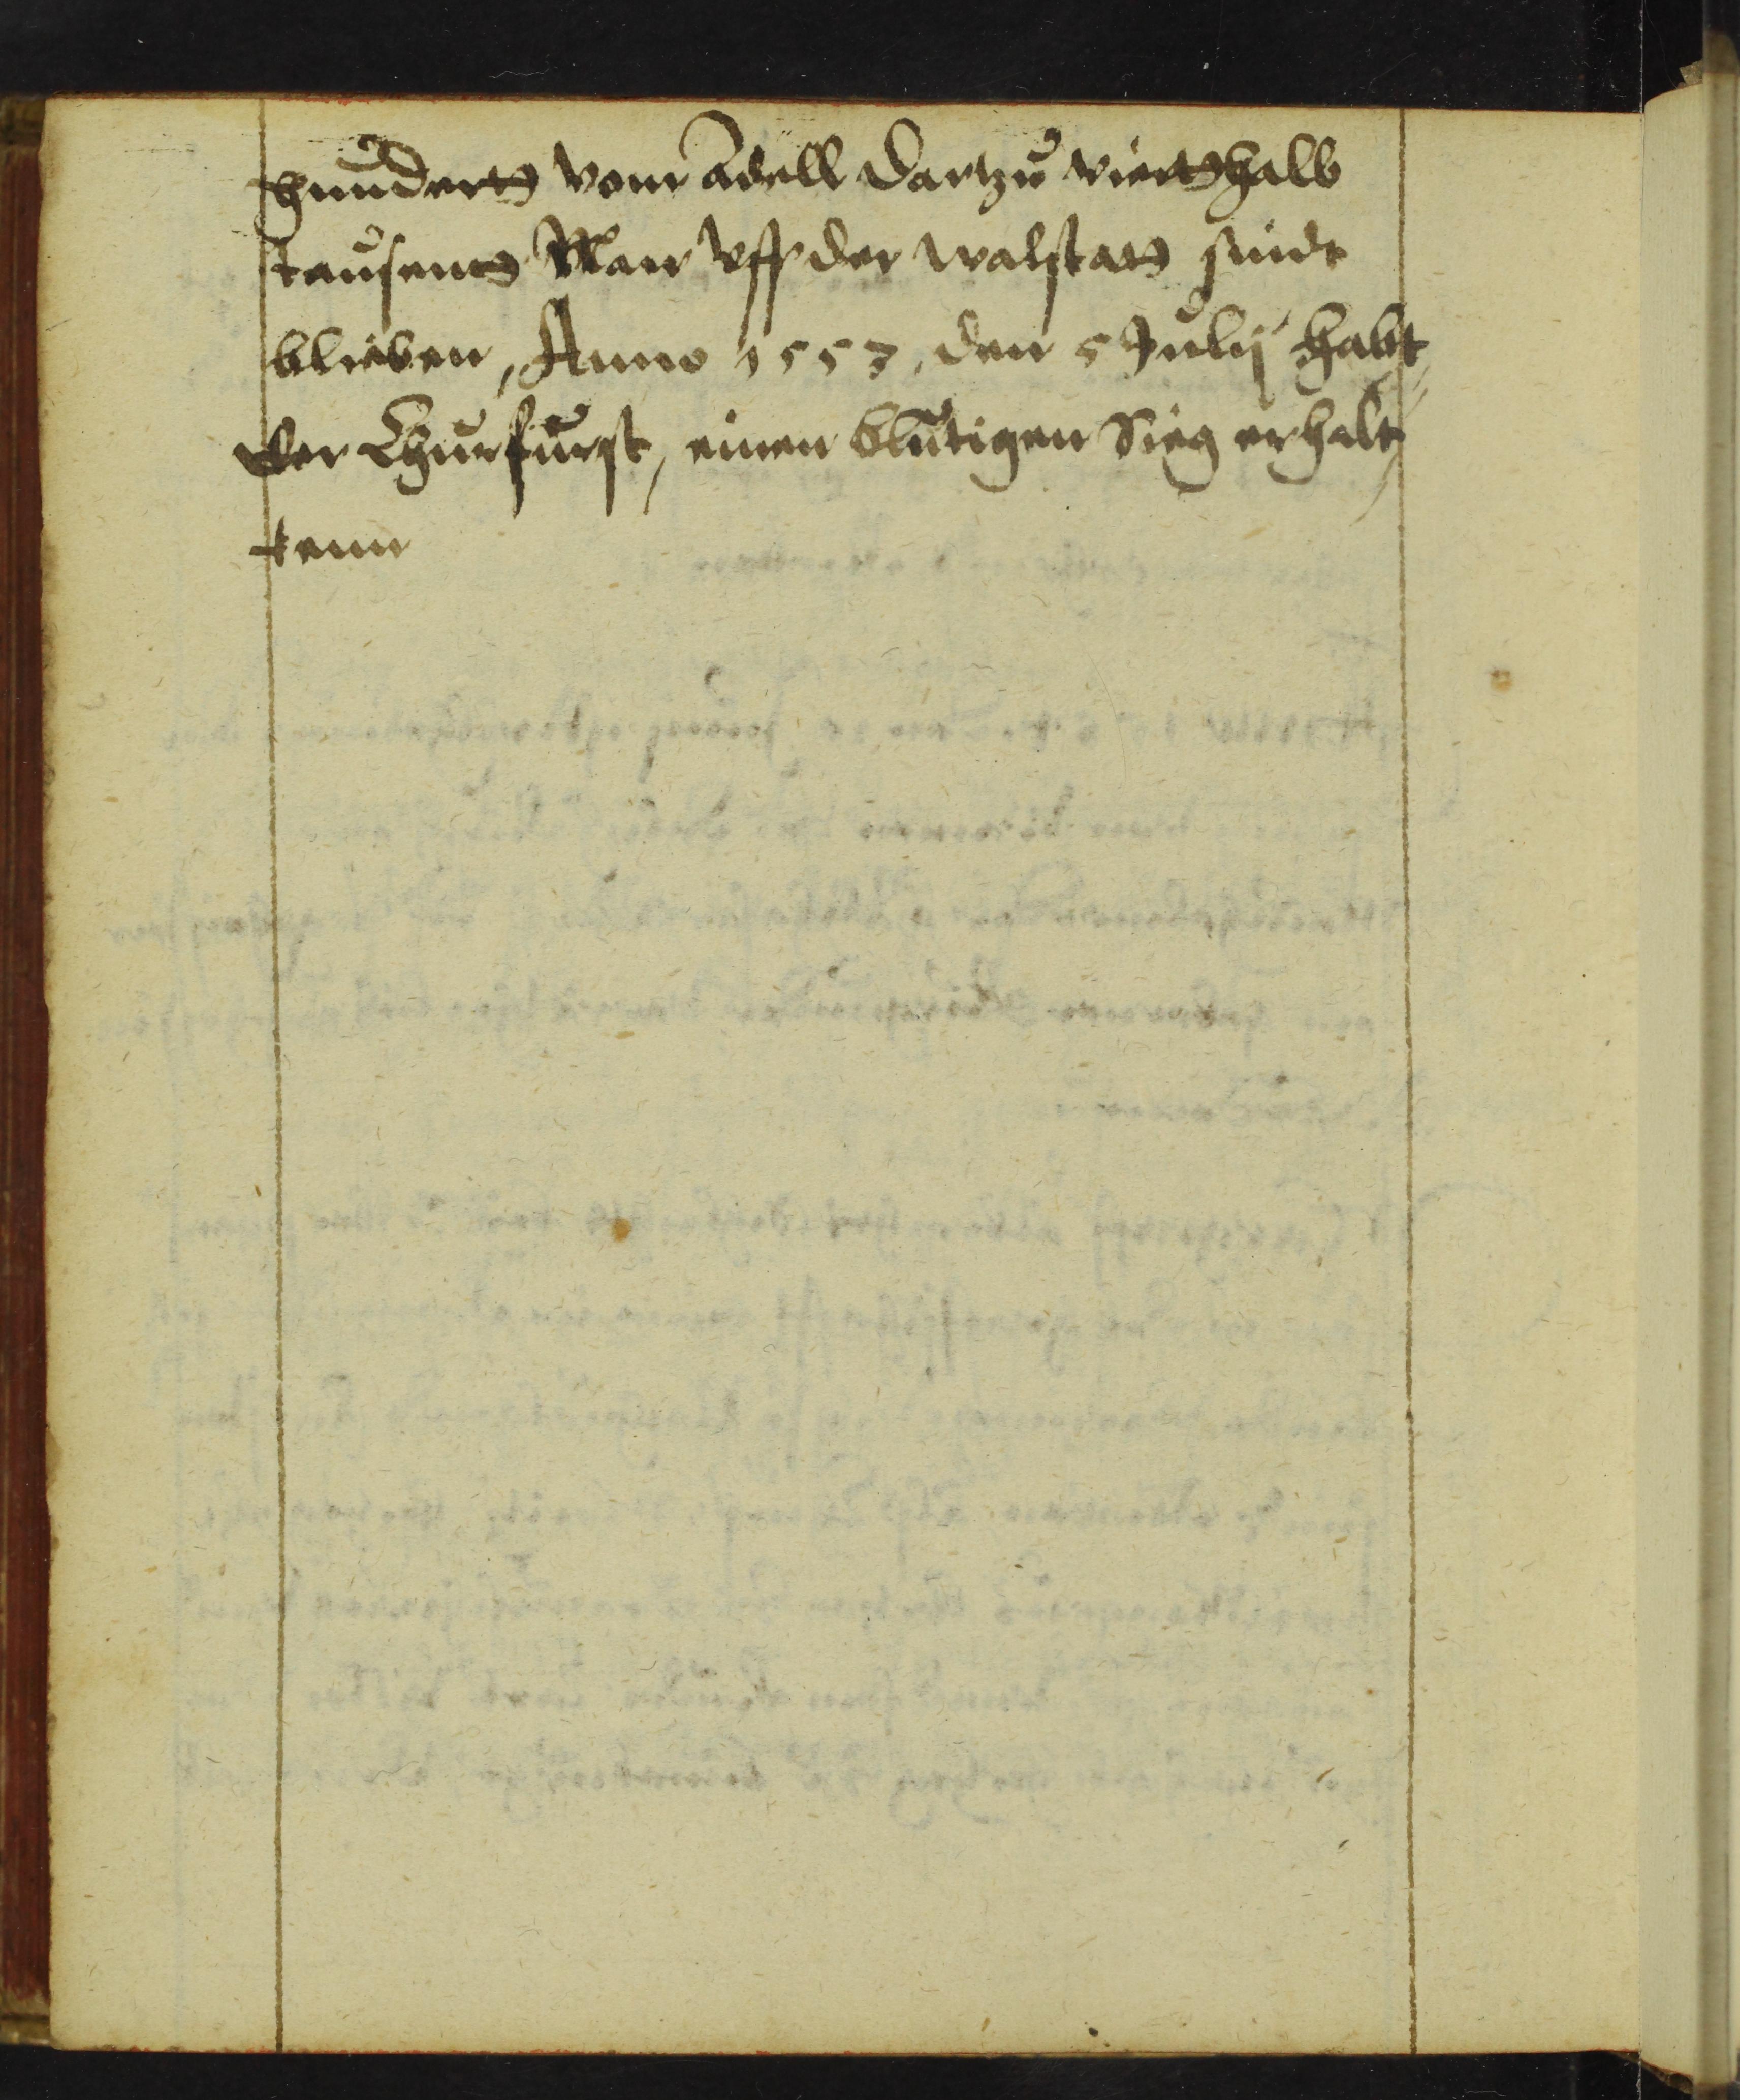 hunderts vom Adell dartzu viertshalb
tausents Man vff der walstats sindt
blieben, Anno 1553, den 5 Julij habt
der Churfurst, einen blutigen Sieg erhalt
tenn